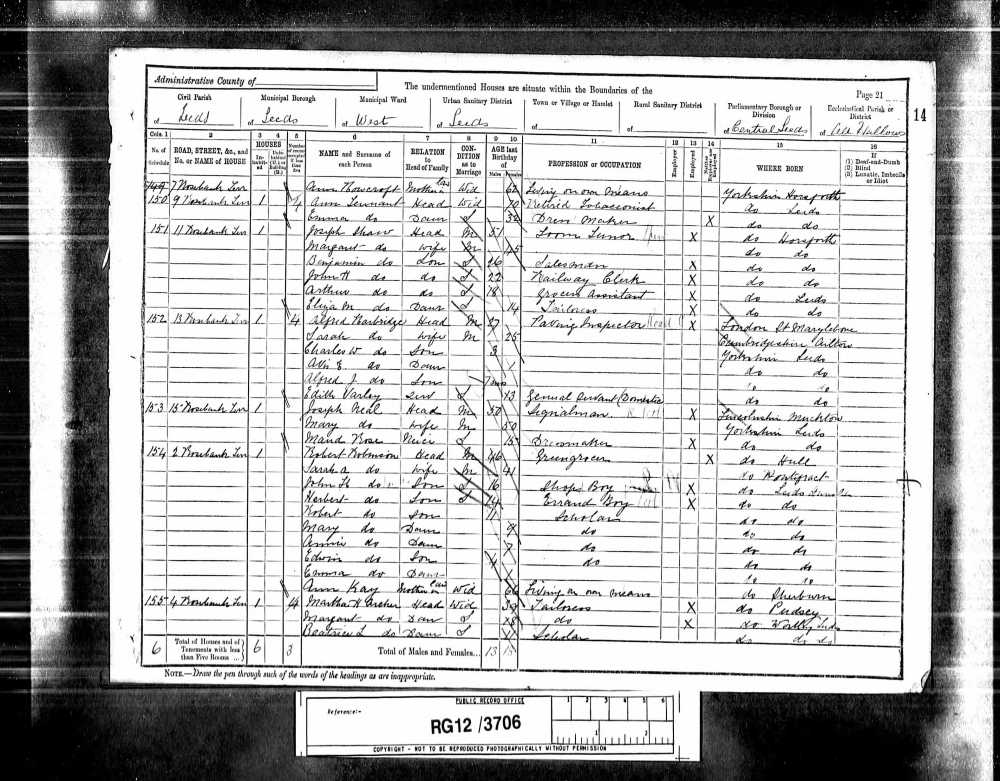 Administrative County of
The undermentioned Houses are situate within the Boundaries of the
Page 21
14
Civil Parish
Municipal Borough
Municipal Ward
Urban Sanitary District
Town or Village or Hamlet
Rural Sanitary District
Parliamentary Borough or Division
Ecclesiastical Parish or District
of Leeds of Leeds of West of Leeds of of of Central Leeds of All Hallows
Cols. 1 2 3 4 5 6 7 8 9 10 11 12 13 14 15 16
No. of Schedule
ROAD, STREET, &c., and No. or NAME of HOUSE
HOUSES
NAME and Surname of each Person
RELATION to Head of Family
CONDITION as to Marriage
AGE last Birthday of
Males Females
PROFESSION or OCCUPATION
Employer
Employed
WHERE BORN
If (1) Deaf-and-Dumb (2) Blind (3) Lunatic, Imbecile or Idiot
149 7 Rosebank Ann Wid Living on own Means Yorkshire Horsforth
150 9 Rosebank 1 4 Ann Tennant Head Wid 70 Retired Tobacconist do Leeds
Emma do Daur S 32 Dress Maker X do do
151 11 Rosebank 1 Joseph Shaw Head M 51 Loom Tuner X do Horsforth
Margaret do Wife M 45 do do
Benjamin do Son S 26 Salesman X do do
John H do do S 22 Railway Clerk X do do
Arthur do do S 18 Grocers Assistant X do Leeds
Eliza M do Daur S 14 Tailoress X do do
152 13 Rosebank 1 4 Alfred Head M 27 Paving Inspector X London St Marylebone
Sarah do Wife M 25 Cambridgeshire
Charles W do Son 3 Yorkshire Leeds
E do Daur 1 do do
Alfred J do Son do
Edith Varley Serv S 13 General Servant (Domestic do do
153 15 Rosebank 1 Joseph Neal Head M 50 Signalman X Lincolnshire Muckton
Mary do Wife M 50 Yorkshire Leeds
Maud Rose Niece S 15 Dressmaker X do do
154 2 Rosebank 1 Robert Robinson Head M 46 Greengrocer X do Hull
Sarah A do Wife M 41 do Pontefract
John H do Son S 16 Shops Boy X do Leeds
Herbert do Son S 14 Errand Boy X do do
Robert do Son 11 Scholar do do
Mary do Daur 9 do do do
Annie do Daur 7 do do do
Edwin do Son 4 do do do
Emma do Daur
Ann Kay Mother in Wid 66 Living on own means do Sherburn
155 4 Rosebank 1 4 Martha H Archer Head Wid Tailoress X do Pudsey
Margaret do Daur S do X do Wortley Leeds
Beatrice L do Daur S Scholar do do
6 Total of Houses and of Tenements with less than Five Rooms 6 3 Total of Males and Females... 13 15
NOTE.—Draw the pen through such of the words of the headings as are inappropriate.
PUBLIC RECORD OFFICE
Reference:-
RG12 /3706
1 2 3 4 5 6
1 2
COPYRIGHT - NOT TO BE REPRODUCED PHOTOGRAPHICALLY WITHOUT PERMISSION